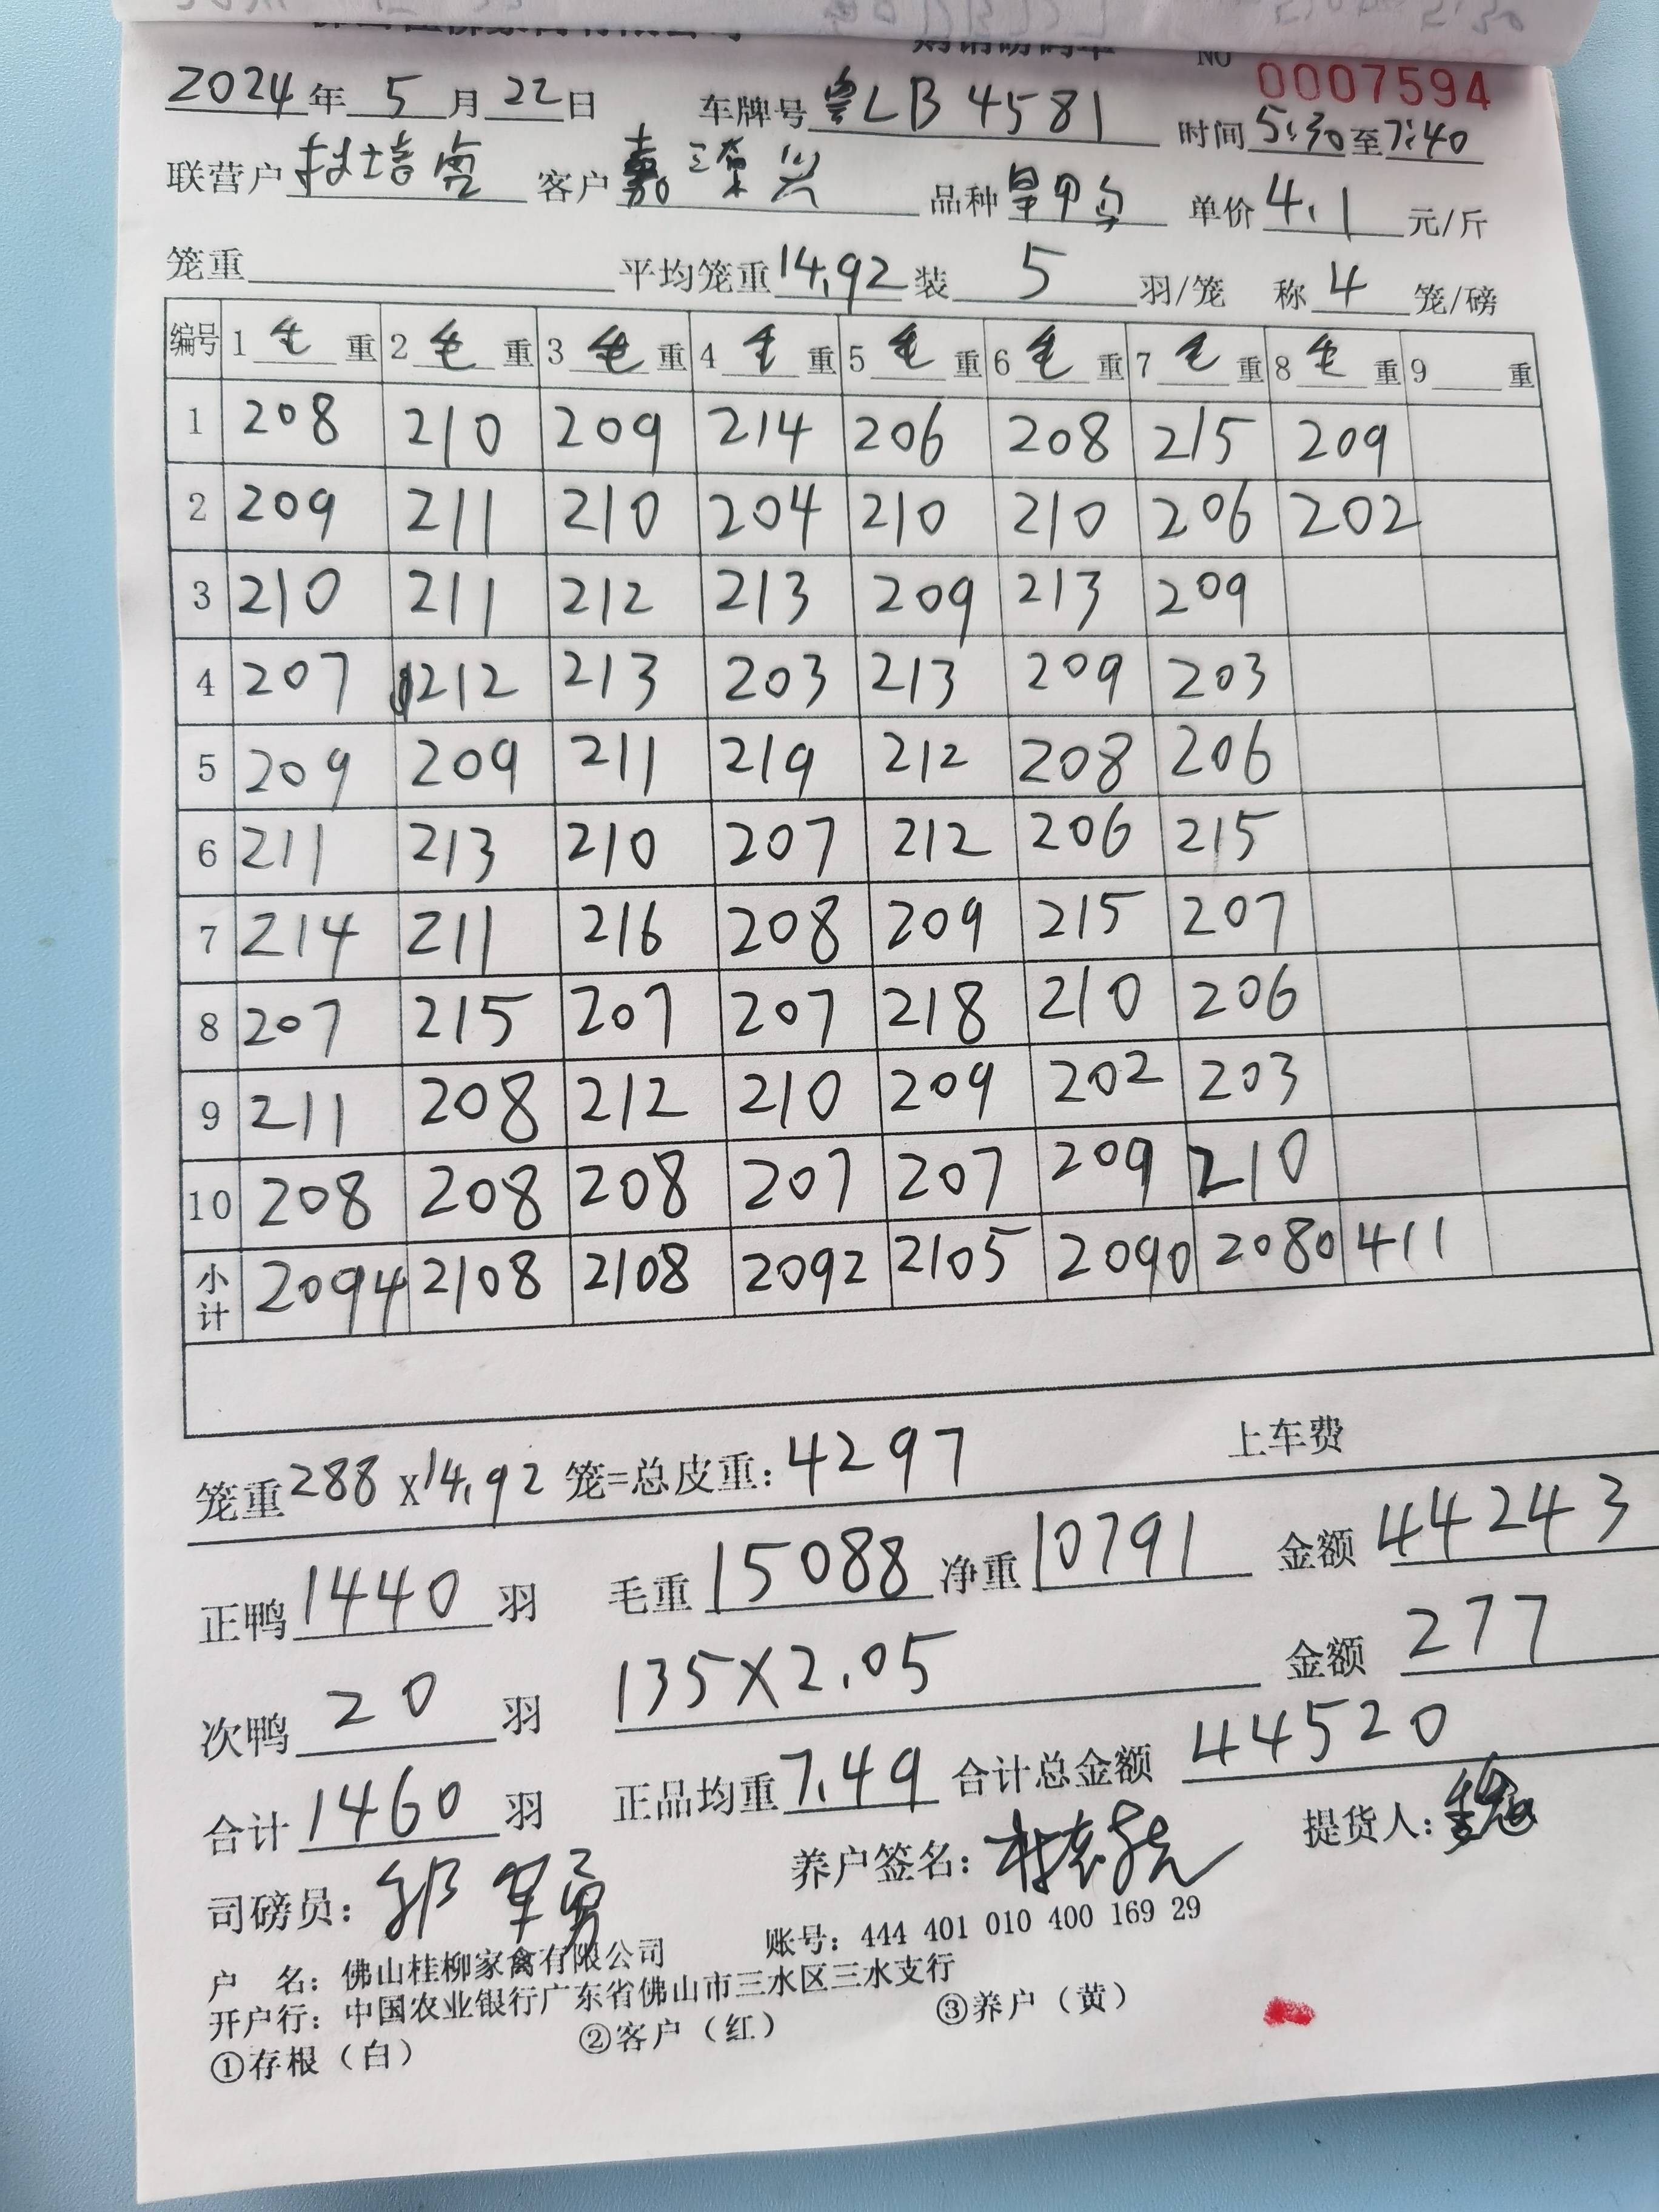 NO 0007594
2024年 5 月 22日 车牌号 粤LB4581 时间 5:30 至 7:40
联营户 客户 嘉 荣兴 品种 单价 4.1 元/斤
笼重 平均笼重 14.92 装 5 羽/笼 称 4 笼/磅
编号 1 毛 重 2 毛 重 3 毛 重 4 毛 重 5 毛 重 6 毛 重 7 毛 重 8 毛 重 9 重
1 208 210 209 214 206 208 215 209
2 209 211 210 204 210 210 206 202
3 210 211 212 213 209 213 209
4 207 212 213 203 213 209 203
5 209 209 211 219 212 208 206
6 211 213 210 207 212 206 215
7 214 211 216 208 209 215 207
8 207 215 207 207 218 210 206
9 211 208 212 210 209 202 203
10 208 208 208 207 207 209 210
小计 2094 2108 2108 2092 2105 2090 2080 411
笼重 288 X 14.92 笼=总皮重: 4297 上车费
正鸭 1440 羽 毛重 15088 净重 10791 金额 44243
次鸭 20 羽 135X2.05 金额 277
合计 1460 羽 正品均重 7.49 合计总金额 44520
司磅员: 养户签名: 提货人:
户 名: 佛山桂柳家禽有限公司 账号: 444 401 010 400 169 29
开户行: 中国农业银行广东省佛山市三水区三水支行
①存根（白） ②客户（红） ③养户（黄）